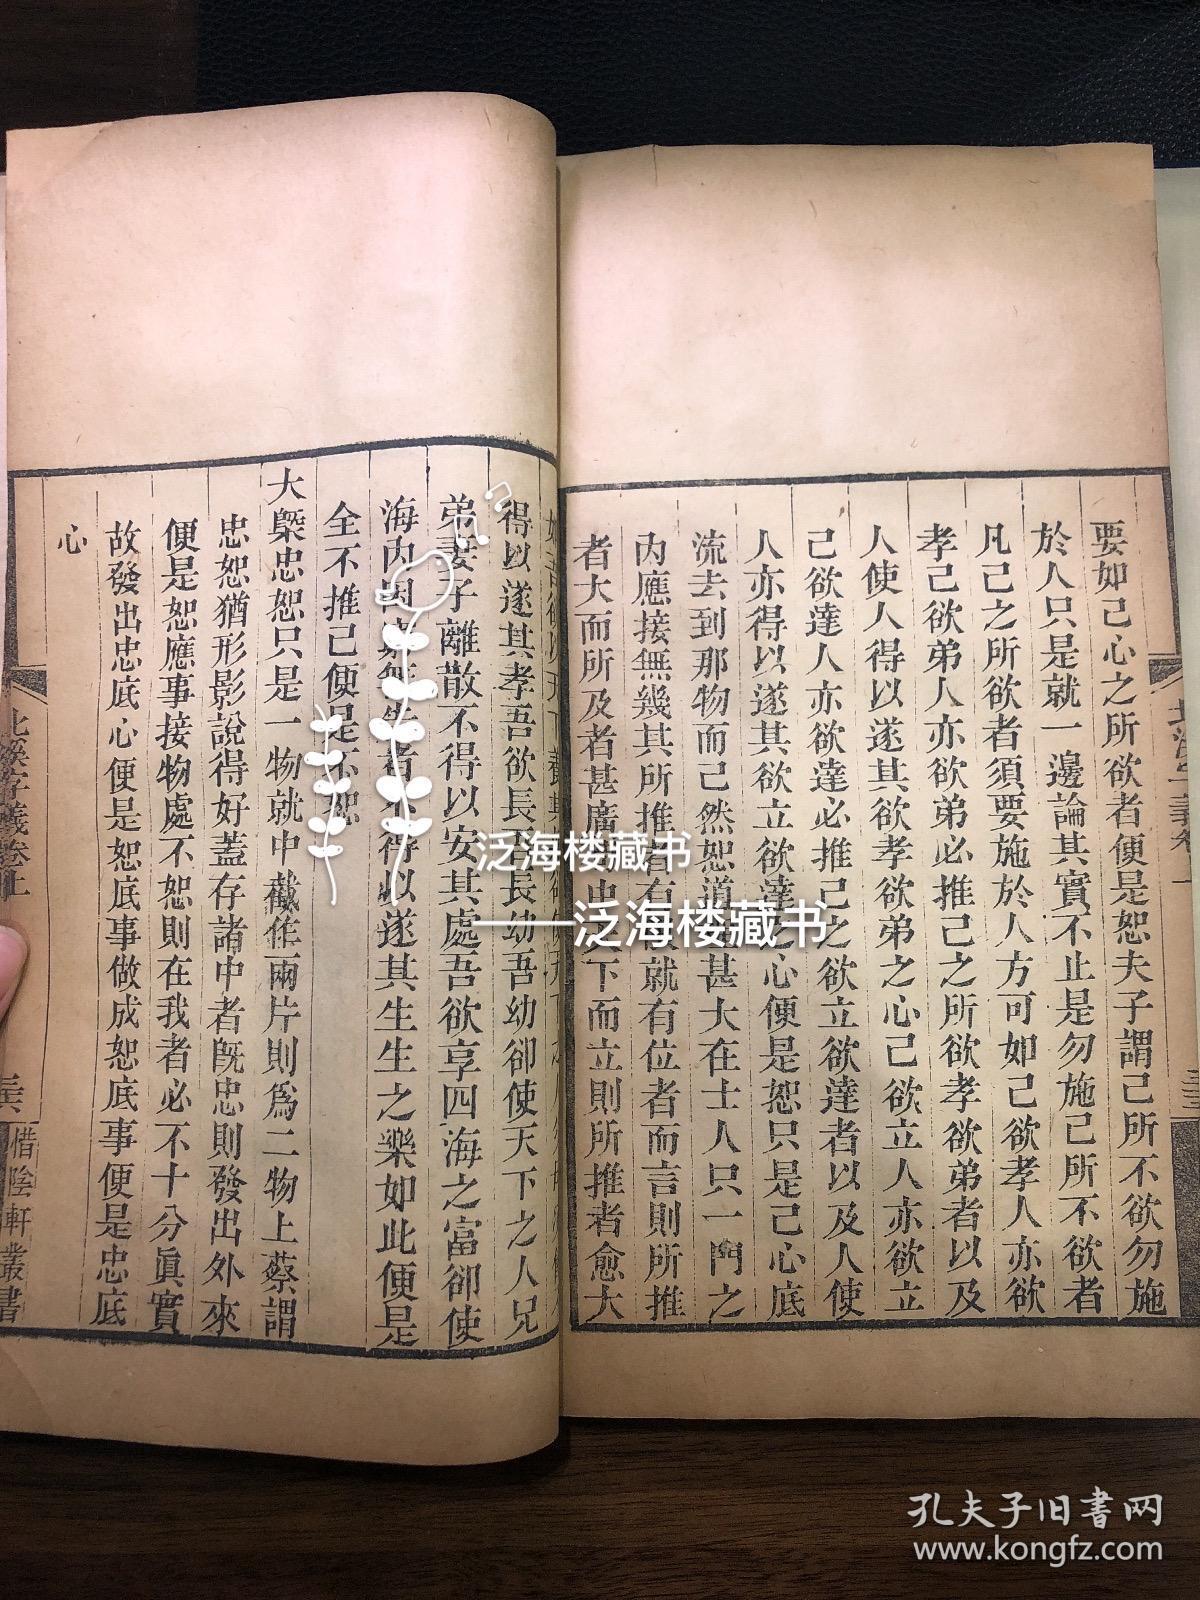 要如己心之所欲者便是恕夫子謂己所不欲勿施
於人只是就一邊論其實不止是勿施己所不欲者
凡己之所欲者須要施於人方可如己欲孝人亦欲
孝己欲弟人亦欲弟必推己之所欲孝欲弟者以及
人使人得以遂其欲孝欲弟之心己欲立人亦欲立
己欲達人亦欲達必推己之欲立欲達者以及人使
人亦得以遂其欲立欲達之心便是恕只是己心底
流去到那物而已然恕道甚大在士人只一門之
內應接無幾其所推者有就有位者而言則所推
者大而所及者甚廣中下而立則所推者愈大
得以遂其孝吾欲長吾長幼吾幼卻使天下之人兄
弟妻子離散不得以安其處吾欲享四海之富卻使
海內困得以遂其生生之樂如此便是
全不推己便是不恕
大槩忠恕只是一物就中截作兩片則爲二物上蔡謂
忠恕猶形影說得好蓋存諸中者旣忠則發出外來
便是恕應事接物處不恕則在我者必不十分眞實
故發出忠底心便是恕底事做成恕底事便是忠底
心
北溪字義卷上
惜陰軒叢書
泛海楼藏书
——泛海楼藏书
孔夫子旧书网
www.kongfz.com